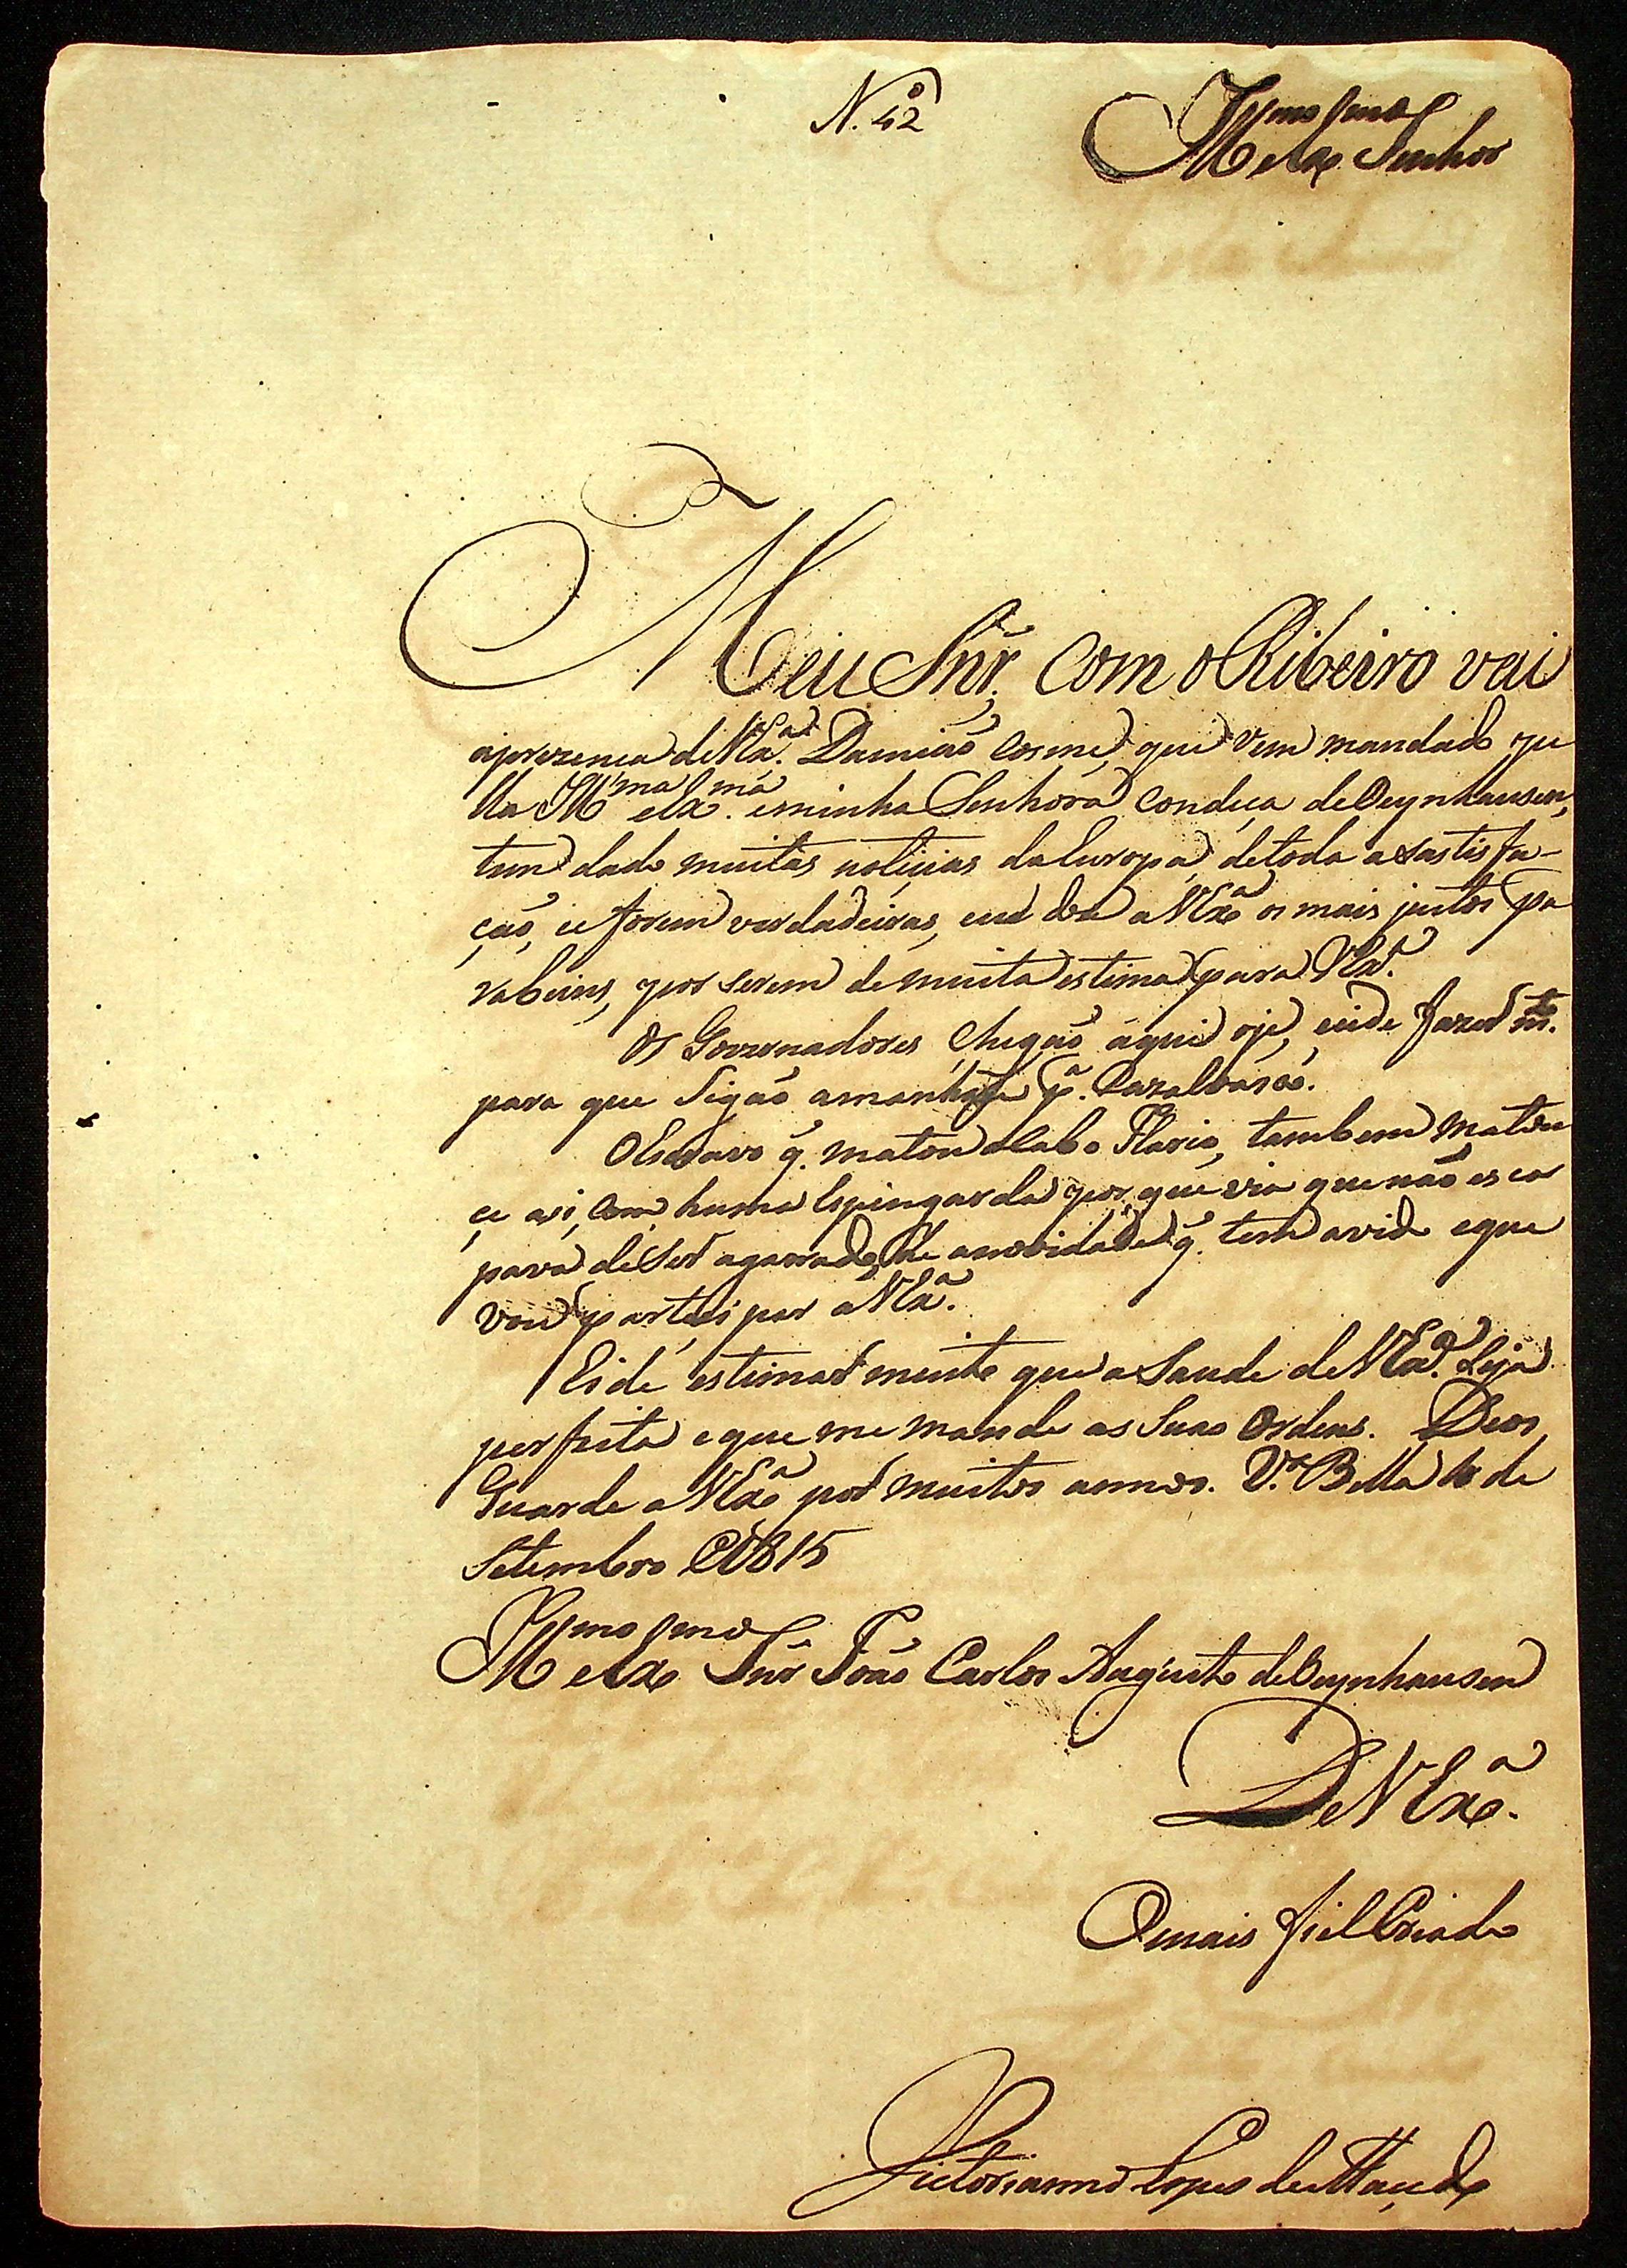 N.º 42
Ill.mo e Ex.mo Senhor
Meu Snr. Com o Ribeiro vai
aprezença de V Ex.ª Damião Cosme, que vem mandado pe
lla Ill.ma e Ex.ma e minha Senhora Condeça de Oeynhausen,
tem dado muitas noticias da Europa, de toda a sastisfa-
ção, ce forem verdadeiras, eu dou a V Ex.ª os mais justos pa
rabeins, por serem de muita estima para V Ex.ª
Os Governadores Chegão aqui oje, eide fazer m.to
para que Sigão amanhã p.ª Cazalvasco.
O Escravo q. matou o Cabo Flavio, tambem matou
ce asi, Com huma Espingarda por que via que não esca
pava de Ser agarrado, hé a novidade q. tem avido e que
vou partecipar a V Ex.ª
Eide estimar muito que a Saude de V Ex.ª Seja
perfeita e que me mande as Suas Ordens. Deos
Guarde a V Ex.ª por muitos annos. V.ª Bella de
Setembro 1815
Ill.mo e Ex.mo Snr João Carlos Augusto de Oeynhausen
De V Ex.ª
O mais fiel Criado
Victorianno Lopes de Maçedo